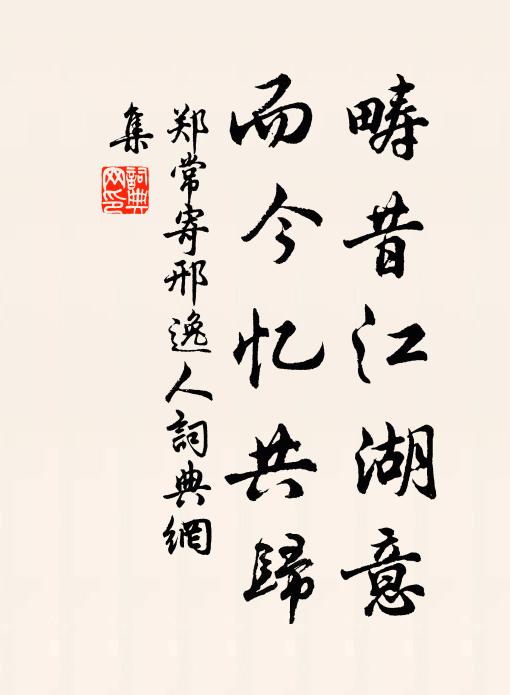 畴昔江湖意
而今忆共歸
郑常寄邢逸人詞典網
集
詞典
网印